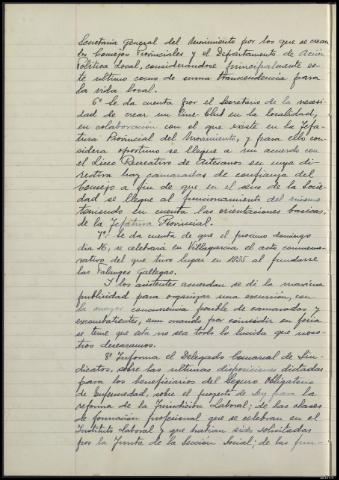 Secretaría general del Movimiento por los que se crean
los Consejos Provinciales y el Departamento de Acción
Política Local, considerándose principalmente es-
te último como de suma transcendencia para
la vida local.
6º Se da cuenta por el Secretario de la necesi-
dad de crear un Cine-Club en la localidad,
en colaboración con el que existe en la Jefa-
tura Provincial del Movimiento, y para ello con-
sidera oportuno se llegue a un acuerdo con
el Liceo Recreativo de Artesanos en cuya di-
rectiva hay camaradas de confianza del
Consejo a fin de que en el seno de la Socie-
dad se llegue al funcionamiento del mismo
teniendo en cuenta las orientaciones básicas,
de la Jefatura Provincial.
7º Se da cuenta de que el próximo domingo
día 16, se celebrará en Villagarcía el acto conmemo-
rativo del que tuvo lugar en 1935 al fundarse
las Falanges Gallegas.
Y los asistentes acuerdan se dé la máxima
publicidad para organizar una excursión, con
la mayor concurrencia posible de camaradas y
excombatientes, aun cuando por coincidir en feria
se teme que ésta no sea todo lo lucida que noso-
tros deseáramos.
8º Informa el Delegado Comarcal de Sin-
dicatos, sobre las últimas disposiciones dictadas
para los beneficiarios del Seguro Obligatorio
de Enfermedad, sobre el proyecto de Ley para la
reforma de la Jurisdicción Laboral; de las clases
de formación profesional que se celebran en el
Instituto laboral y que habían sido solicitadas
por la Junta de la Sección Social; de las fun-